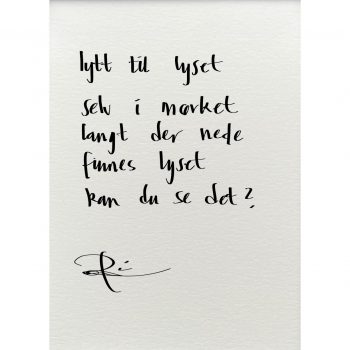 lytt til lyset
selv i mørket
langt der nede
finnes lyset
kan du se det?